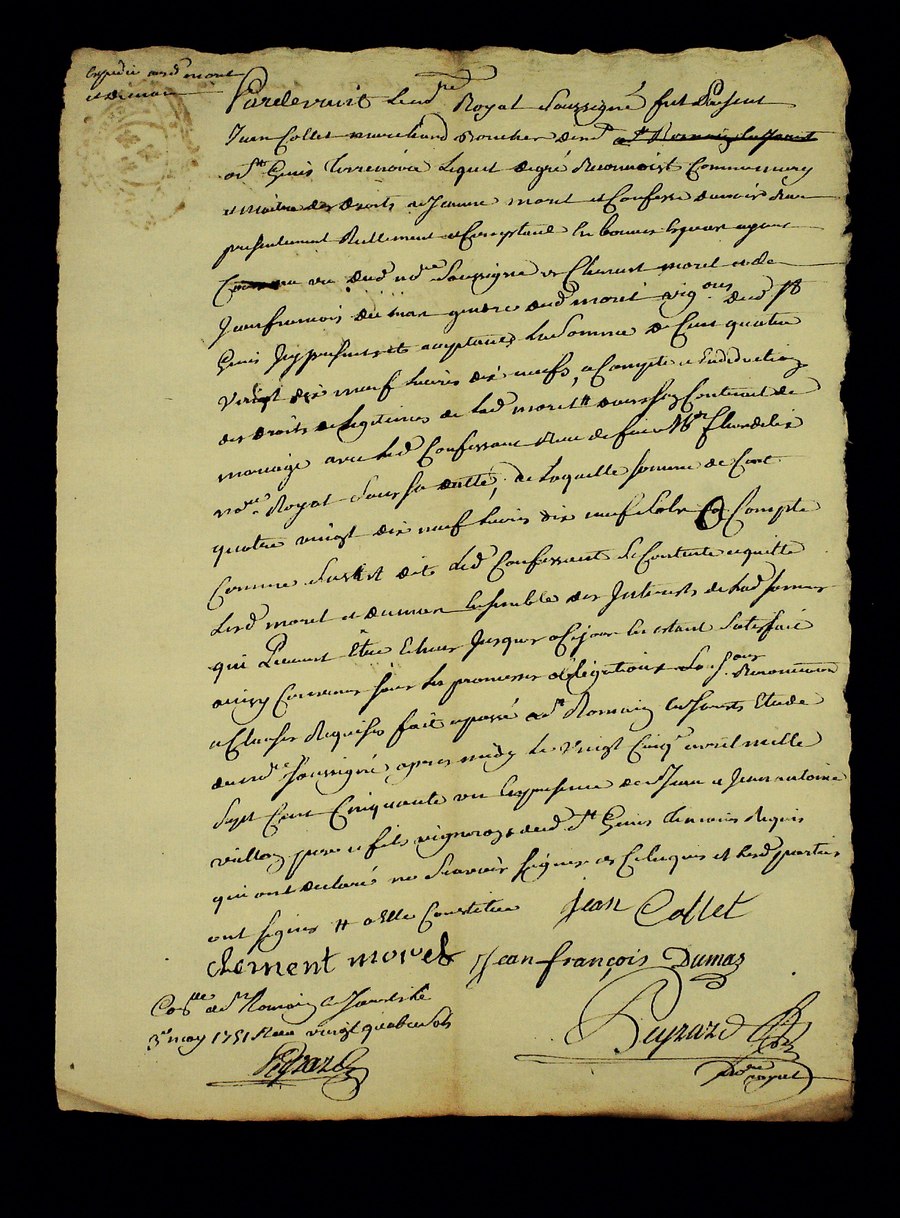 Expedié aud. moret
et Dumas
Pardevant le no.re Royal Soussigné fut present
Jean Collet marchand Boucher de
a St. Genis Terrenoire lequel de gré Reconnoist Comme mary
et maitre des droits de Jeanne moret et Confesse d'avoir Reçu
presentement Reellement et Comptant en bonnes Especes ayant
vu dud. no.re Soussigné de Clement moret et de
Jean françois dumas gendre dud. moret vig.ons dud. St
Genis Icy presents et acceptants la Somme de Cent quatre
vingt dix neuf livres dix neuf s. a Compte et En déduction
des droits de Legitimes de lad. moret # dans son Contract de
mariage avec led. Confessant Reçu de feu Me. fleurdelix
no.re Royal Sous sa datte, de laquelle Somme de Cent
quatre vingt dix neuf livres dix neuf sols a Compte
Comme dessus est dit led. Confessant Se Contente et quitte
lesd. moret et dumas Ensemble des Interests de lad. Somme
qui peuvent Etre Echus Jusques a Ce jour En estant Satisfait
ainsy Convenu sous les promesses obligations Renonciation
et Clauses Requises fait et passé a St. Romain Etude
du no.re Soussigné apres midy le vingt Cinq avril mille
Sept Cent Cinquante un En presence de Sr. Jean et Jean antoine
pere et fils vignerons dud. St. Genis temoins Requis
qui ont declaré ne Scavoir Signer de Ce Enquis et lesd. parties
ont Signés # a Elle Constitué
Jean Collet
Clement moret Jean françois Dumas
Co.lle a St. Romain en Jarest le
3e may 1751 Reçu vingt quatre sols
Peyrard
Peyrard
no.re royal